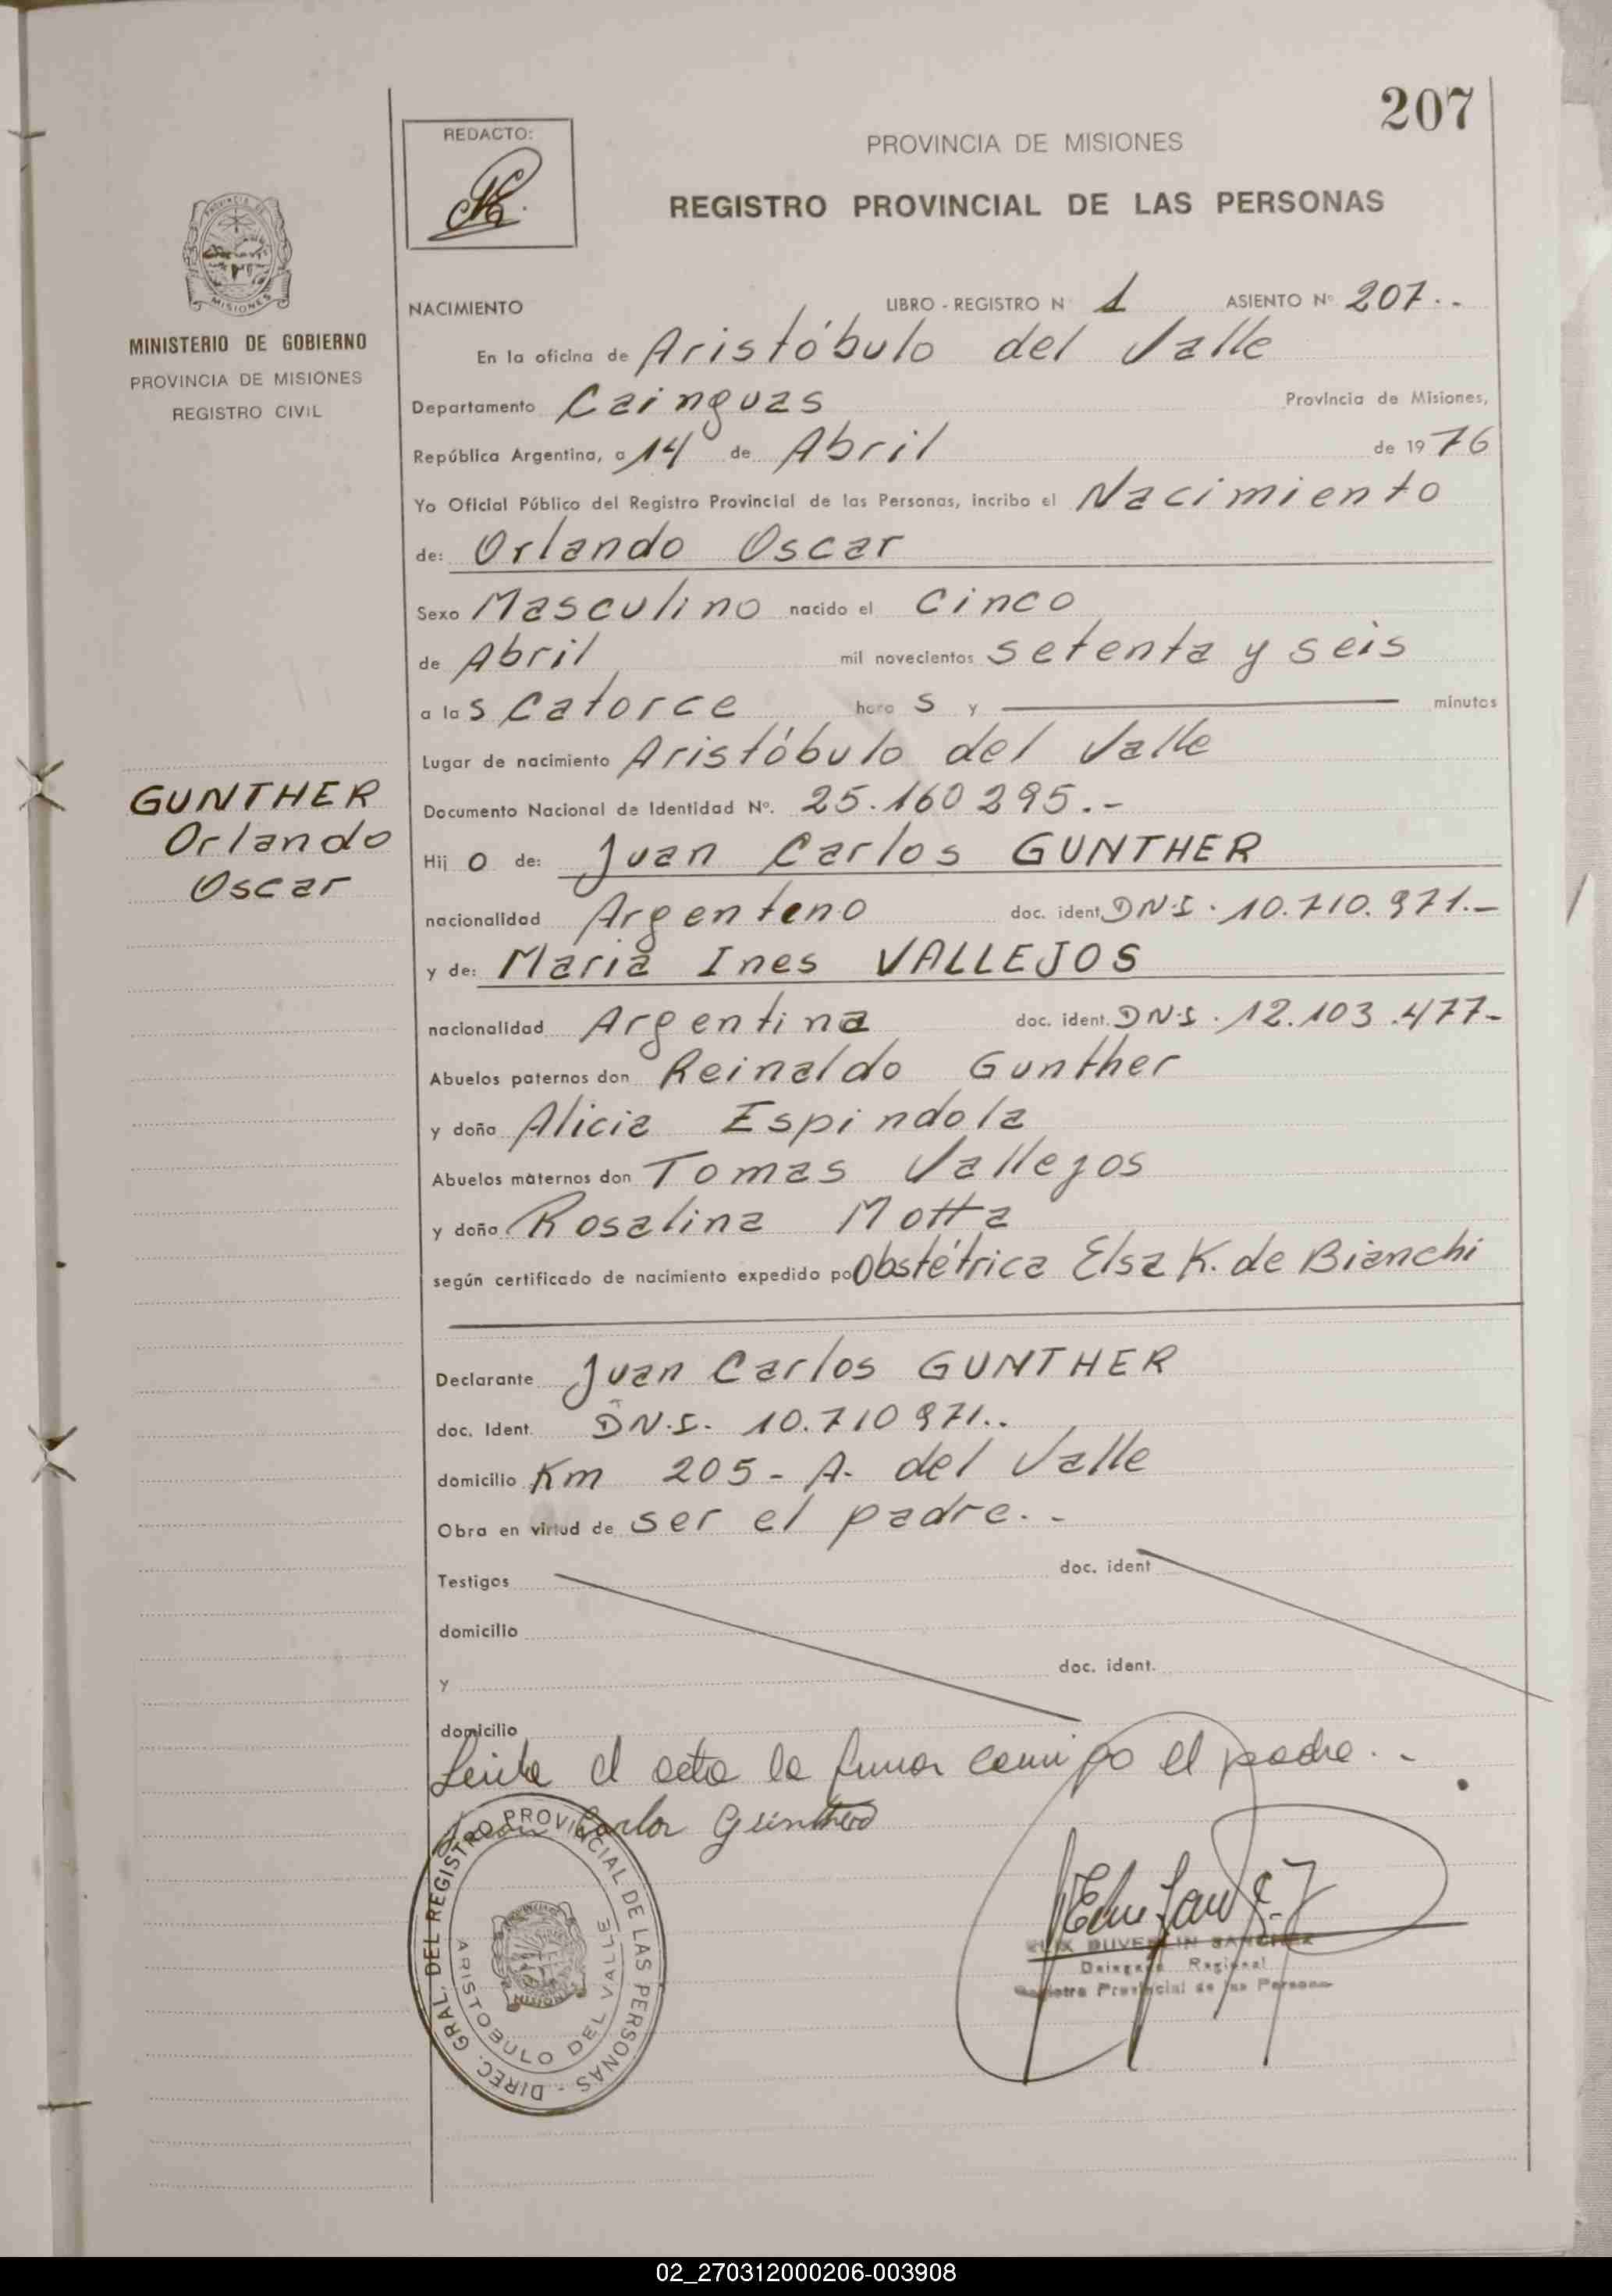 207
REDACTO:
PROVINCIA DE MISIONES
REGISTRO PROVINCIAL DE LAS PERSONAS
MISIONES
MINISTERIO DE GOBIERNO
PROVINCIA DE MISIONES
REGISTRO CIVIL
NACIMIENTO LIBRO - REGISTRO N 1 ASIENTO Nº 207..
En la oficina de Aristóbulo del Valle
Departamento Cainguas Provincia de Misiones,
República Argentina, a 14 de Abril de 1976
Yo Oficial Público del Registro Provincial de las Personas, incribo el Nacimiento
de: Orlando Oscar
Sexo Masculino nacido el cinco
de Abril mil novecientos setenta y seis
a las catorce horas y minutos
Lugar de nacimiento Aristóbulo del Valle
Documento Nacional de Identidad Nº. 25.160295.-
GUNTHER
Orlando
Oscar
Hijo de: Juan Carlos GUNTHER
nacionalidad Argenteno doc. ident. DN.I. 10.710.971.-
y de: Maria Ines VALLEJOS
nacionalidad Argentina doc. ident. DN.I. 12.103.477-
Abuelos paternos don Reinaldo Gunther
y doña Alicia Espindola
Abuelos maternos don Tomas Vallejos
y doña Rosalina Motta
según certificado de nacimiento expedido po Obstétrica Elsa K. de Bianchi
Declarante Juan Carlos GUNTHER
doc. Ident. DN.I. 10.710971..
domicilio Km 205- A. del Valle
Obra en virtud de ser el padre..-
Testigos doc. ident
domicilio
y doc. ident.
domicilio
Leida el acta la firma conmigo el padre..-
Juan Carlos Günther
DIREC. GRAL. DEL REGISTRO PROVINCIAL DE LAS PERSONAS -
ARISTOBULO DEL VALLE
SANCHEZ
Regional
Provincial de las Personas
02_270312000206-003908